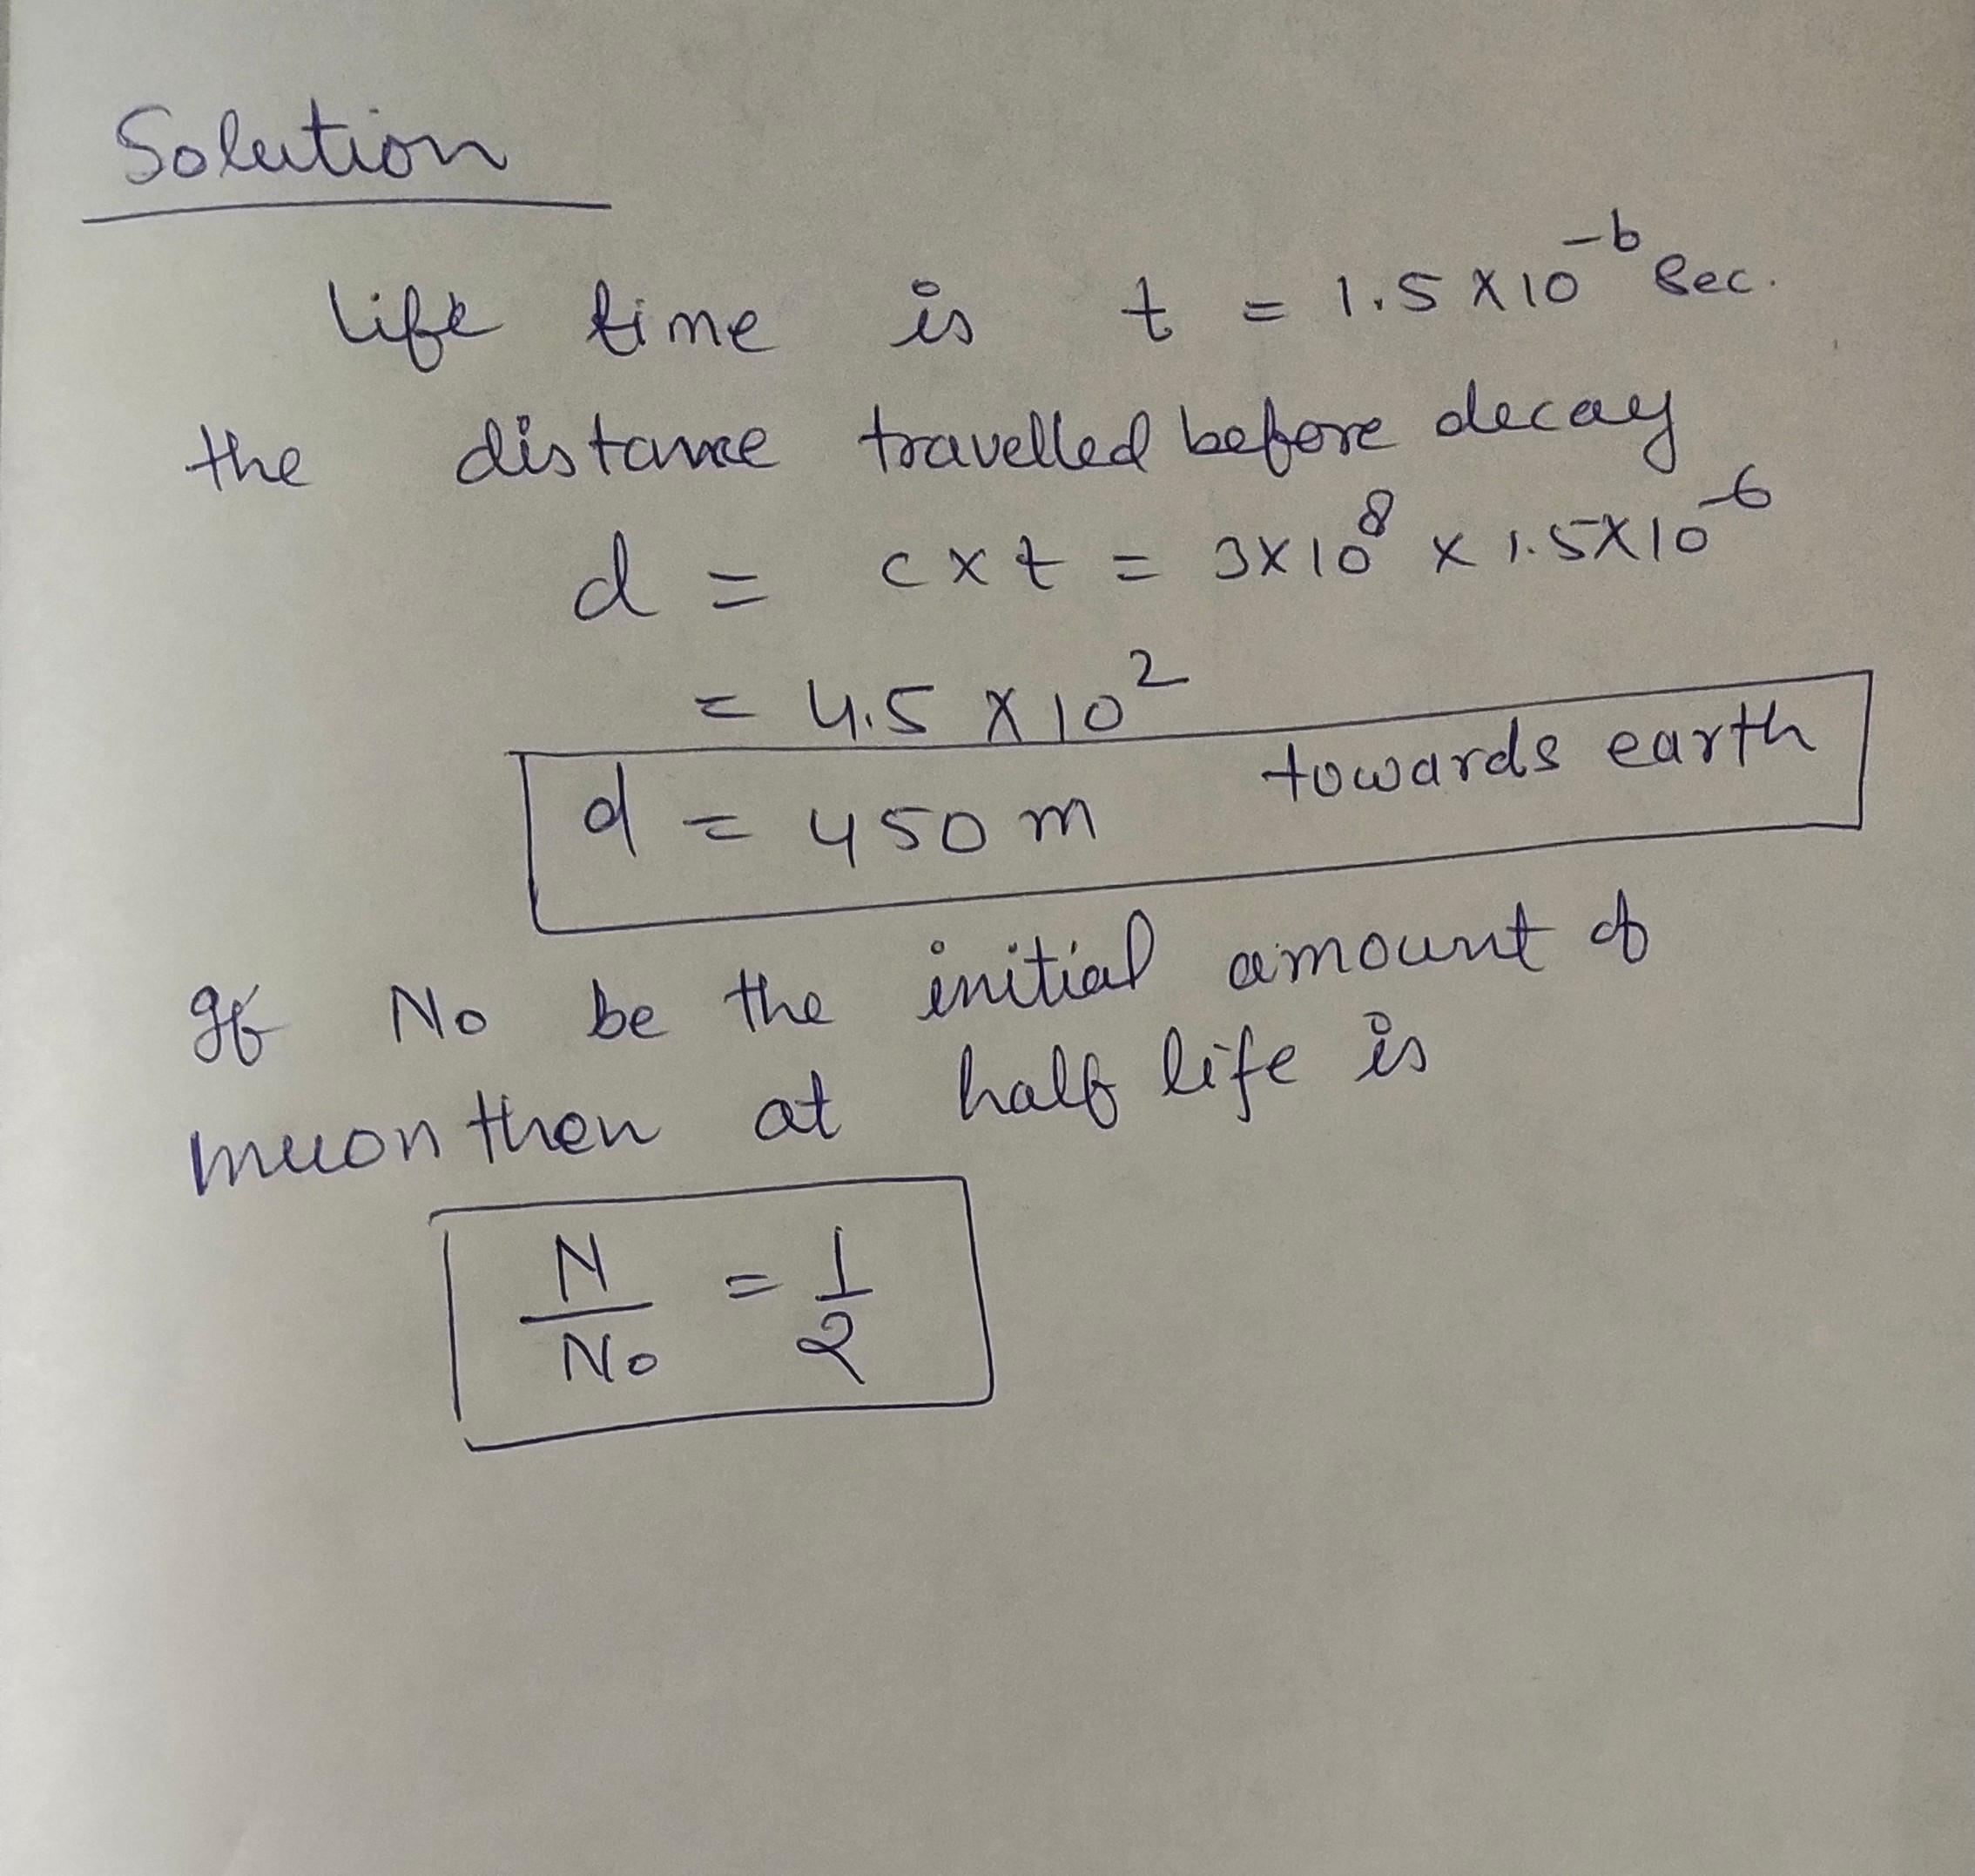 Solution
life time is t = 1.5 X 10^-6 Sec.
the distance travelled before decay
d = c x t = 3X10^8 x 1.5X10^-6
= 4.5 X 10^2
d = 450 m towards earth
If No be the initial amount of
muon then at half life is
N/No = 1/2